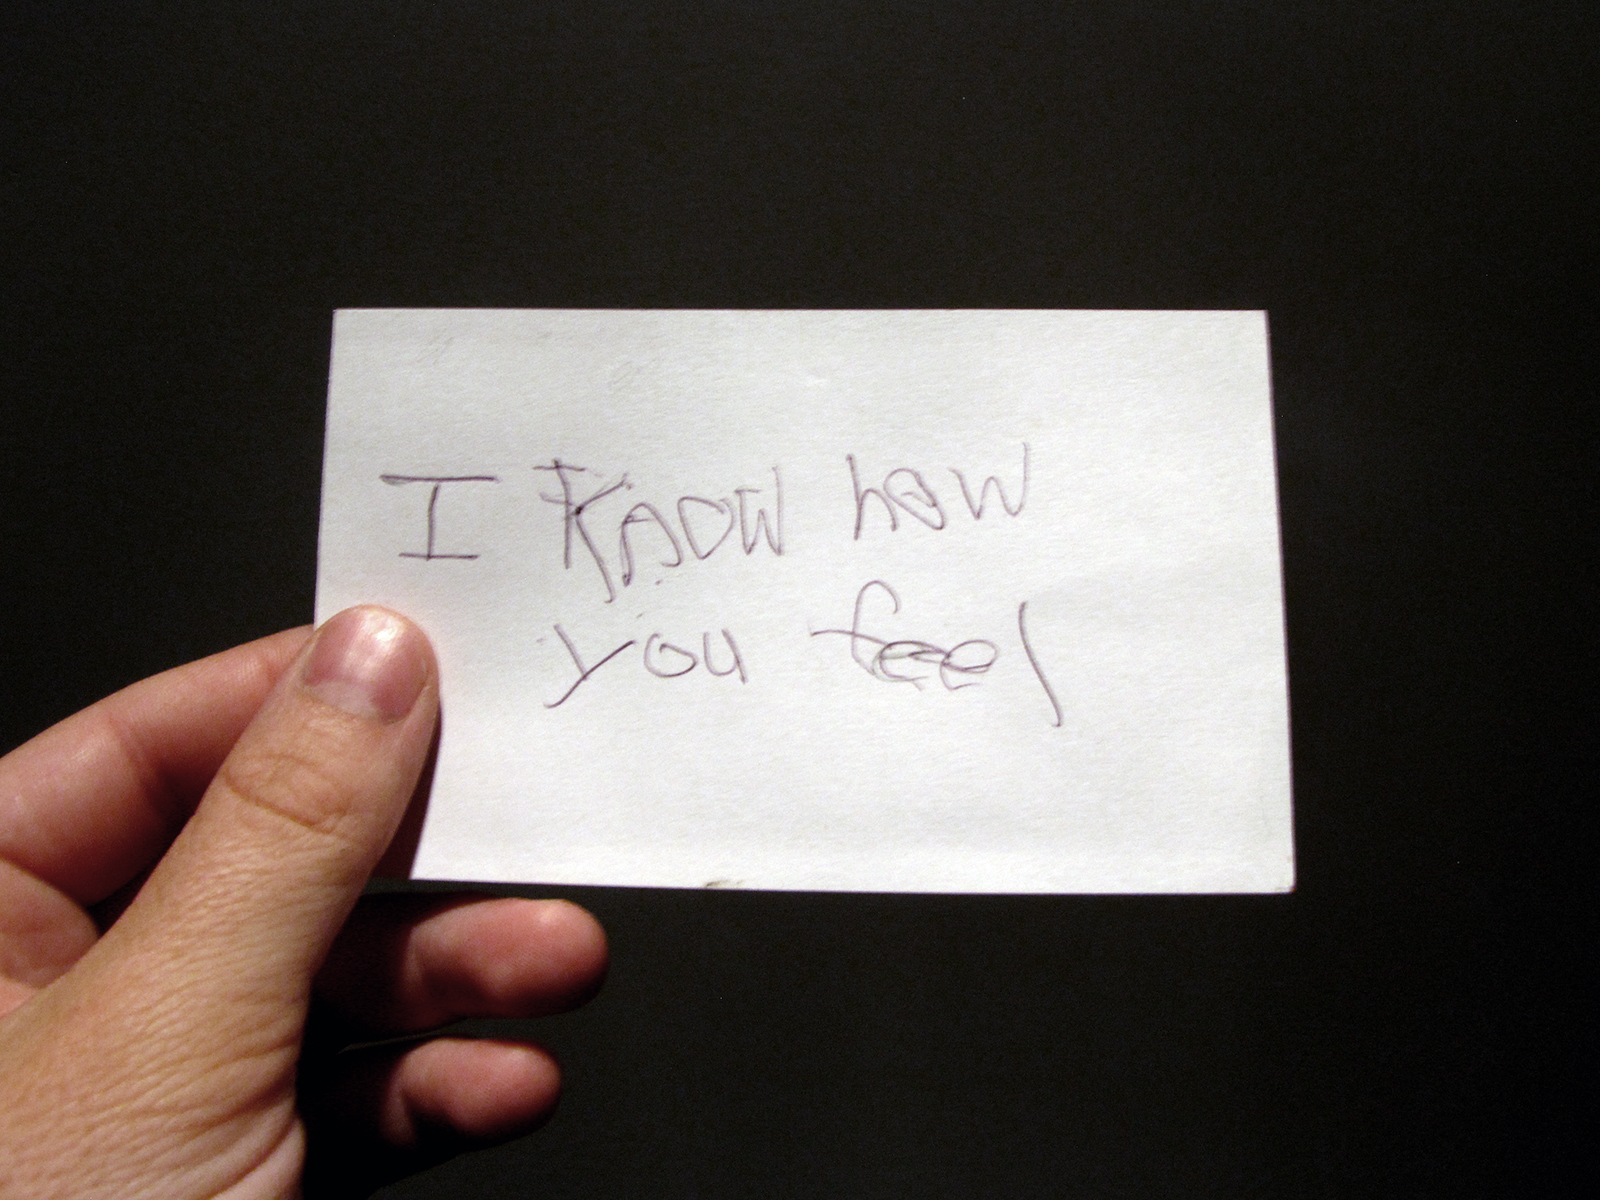 I Know how
you feel